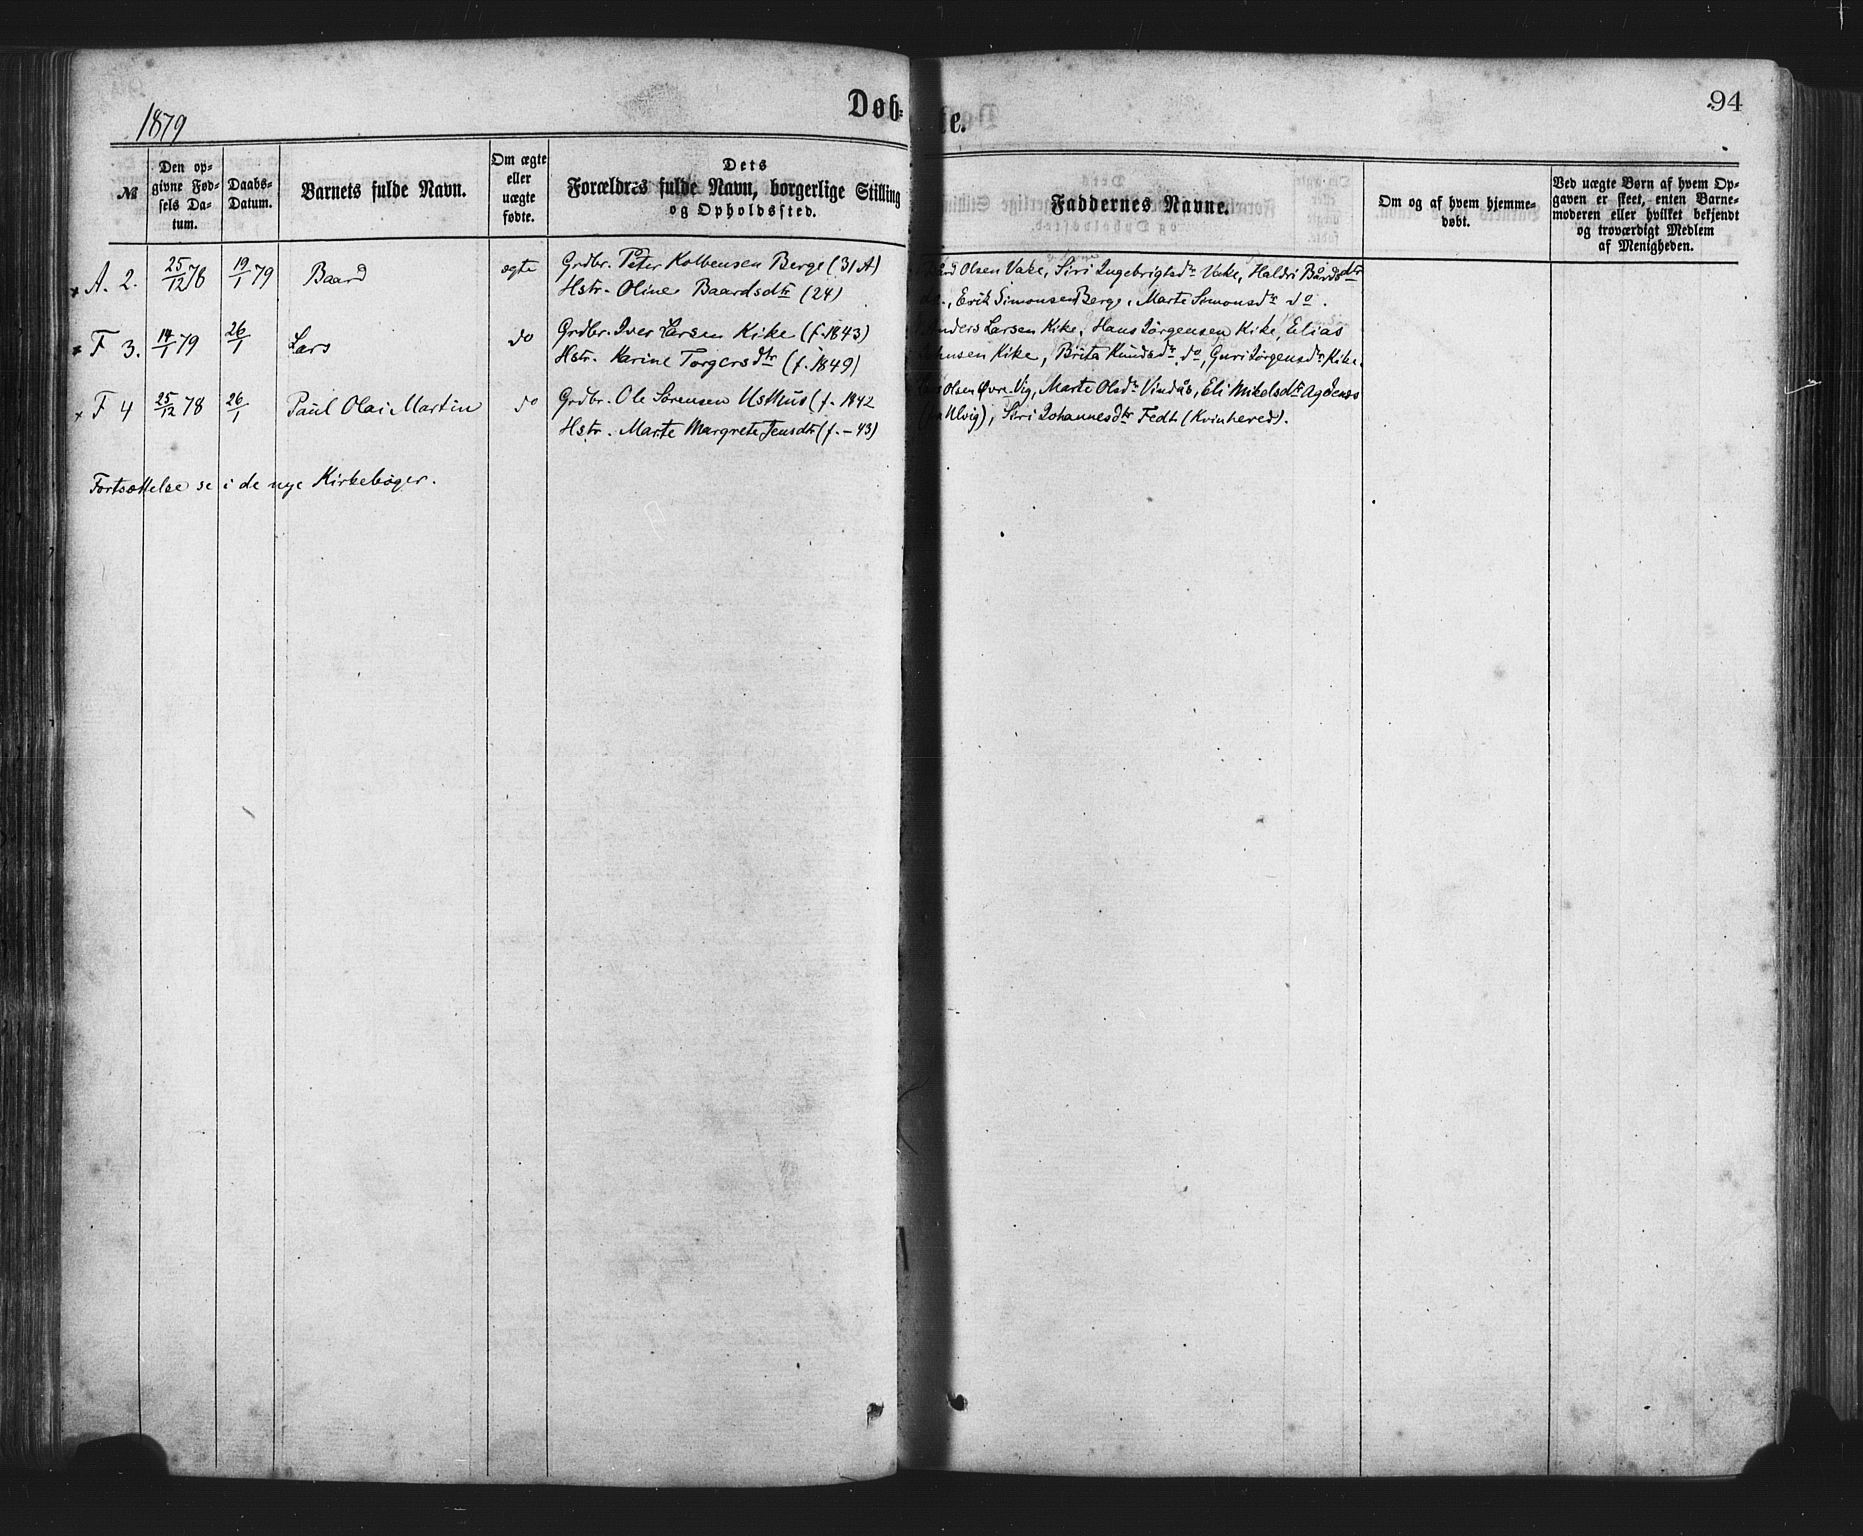 1879
Døb-
te.
94
№
Den op-
givne Fød-
sels Da-
tum.
Daabs-
Datum.
Barnets fulde Navn.
Om ægte
eller
uægte
fødte.
Dets
Forældres fulde Navn, borgerlige Stilling
og Opholdssted.
Faddernes Navne.
Om og af hvem hjemme-
døbt.
Ved uægte Børn af hvem Op-
gaven er skeet, enten Barne-
moderen eller hvilket bekjendt
og troværdigt Medlem
af Menigheden.
x A. 2. 25/12 78 19/1 79 Baard ægte Grdbr. Peter Kolbensen Berge (31 A)
Hstr. Oline Baardsdtr (24)
Olsen Vake, Siri Ingebrigtsdr Vake, Haldri Bårdsdtr
do., Erik Simonsen Berge, Marte Simonsdr do.
x F 3. 14/1 79 26/1 Lars do Grdbr. Iver Larsen Kike (f. 1843)
Hstr. Karine Torgersdtr (f. 1849)
Anders Larsen Kike, Hans Jørgensen Kike, Elias
Johnsen Kike, Brita Knudsdr do, Guri Jørgensdr Kike.
x F 4 25/12 78 26/1 Paul Olai Martin do Grdbr. Ole Sørensen Usthus (f. 1842
Hstr. Marte Margrete Jensdtr (f. – 43)
Olsen Øvre Vig, Marte Olsdr Vindås, Eli Mikelsdtr
(fra Ulvig), Siri Johannesdtr Fedt (Kvinhered).
Fortsættelse se i de nye Kirkebøger.